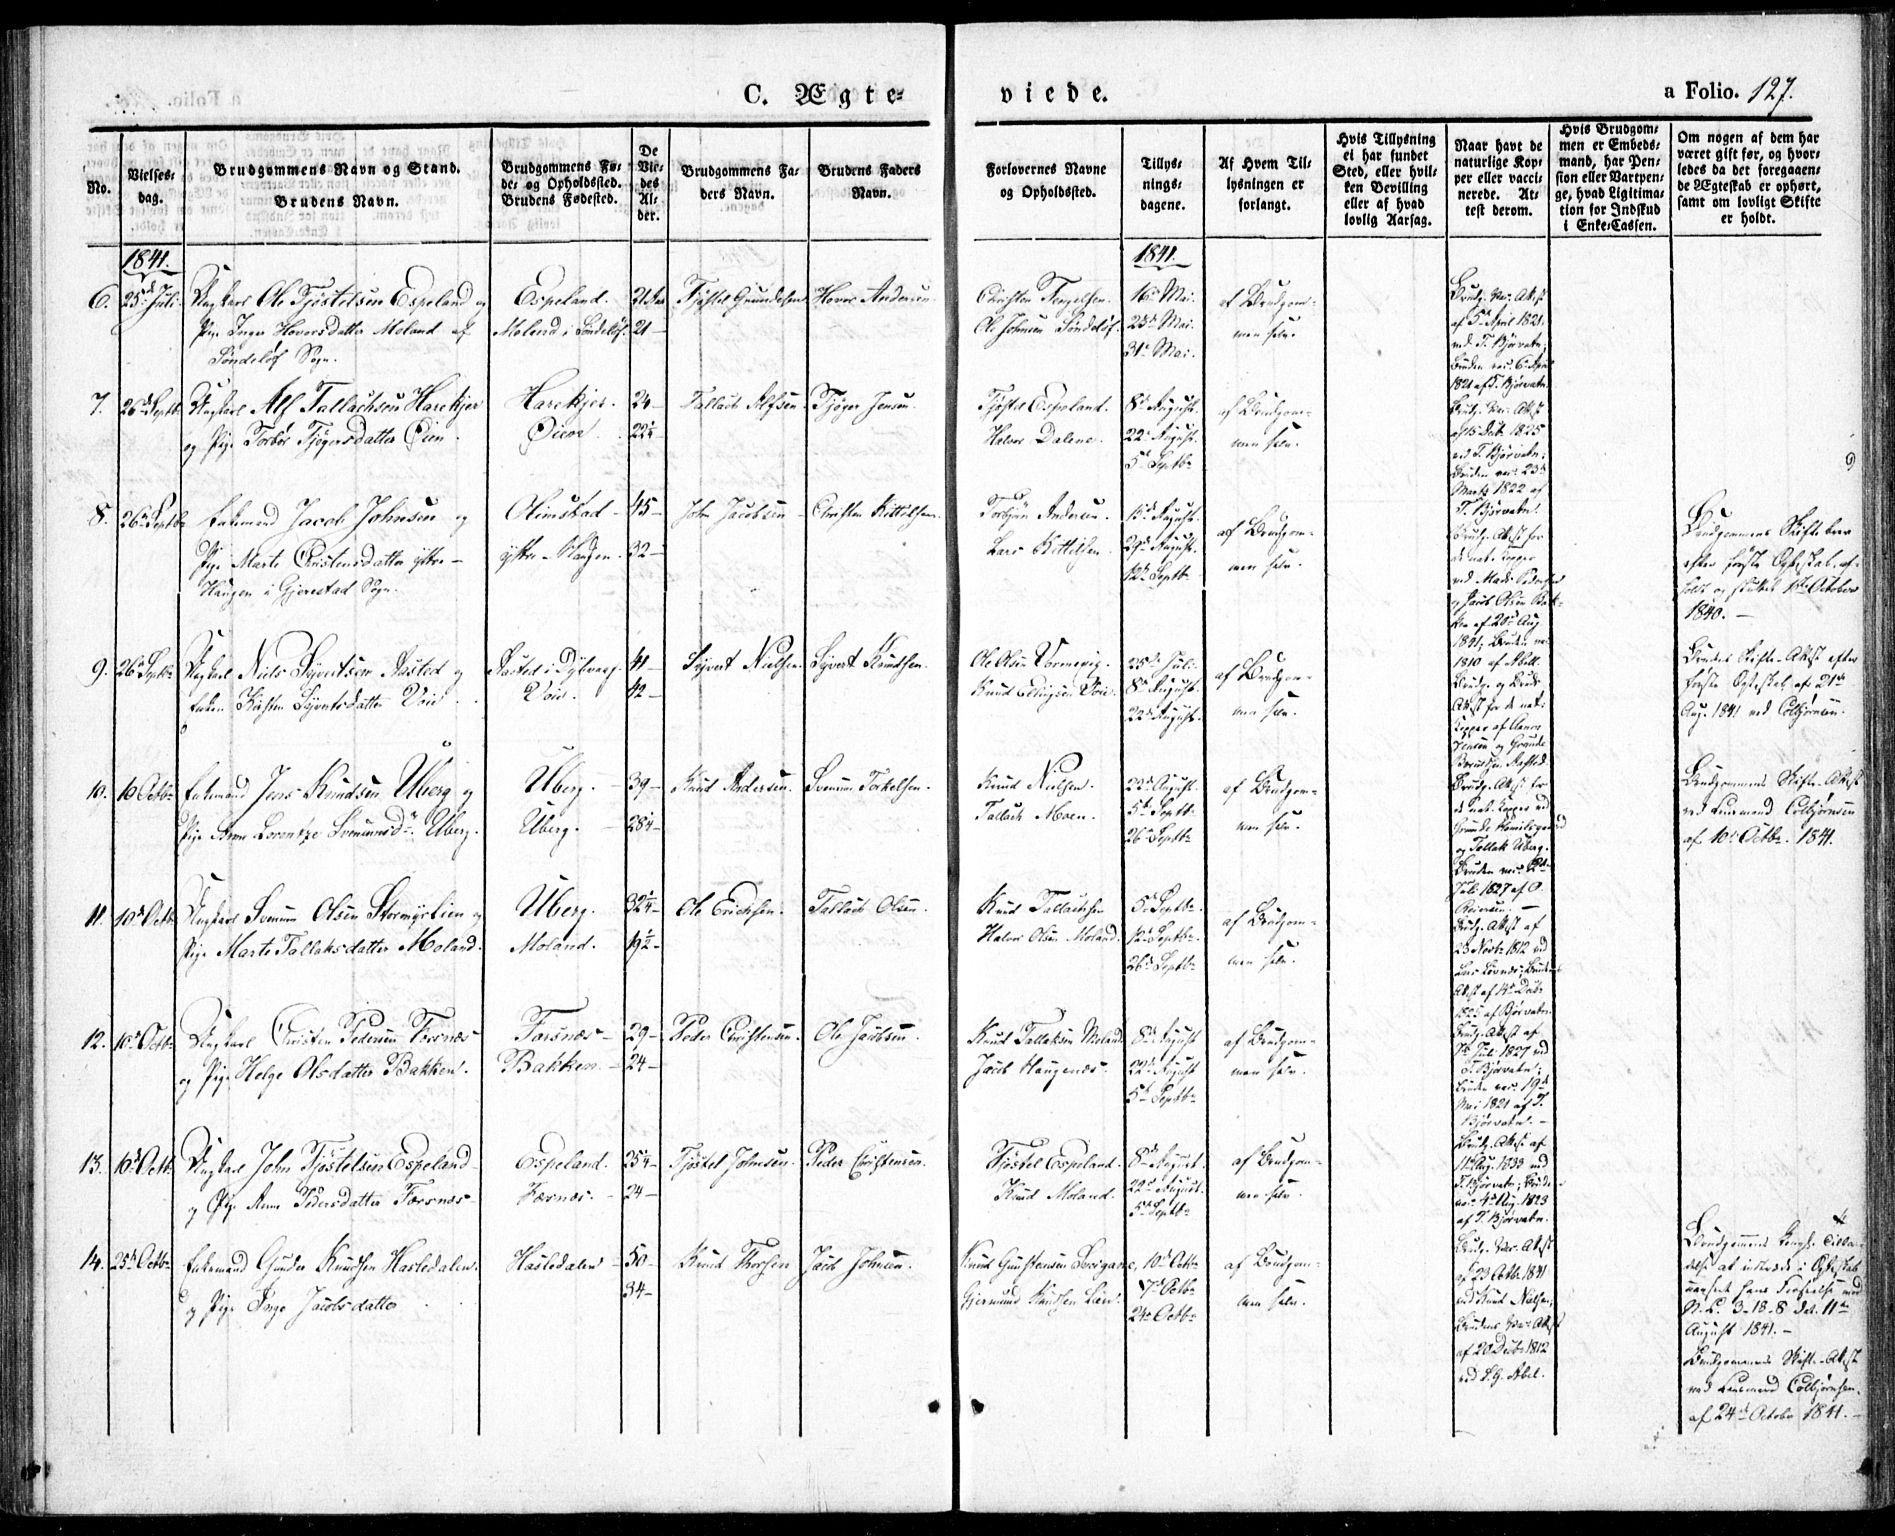 C. Ægte-
viede.
a Folio. 127.
No.
Vielses-
dag.
Brudgommens Navn og Stand.
Brudens Navn.
Brudgommens Fø-
de- og Opholdssted.
Brudens Fødested.
De
Vie-
des
Al-
der.
Brudgommens Fa-
ders Navn.
Brudens Faders
Navn.
Forlovernes Navne
og Opholdssted.
Tillys-
nings-
dagene.
Af Hvem Til-
lysningen er
forlangt.
Hvis Tillysning
ei har fundet
Sted, eller hvil-
ken Bevilling
eller af hvad
lovlig Aarsag.
Naar havt de
naturlige Kop-
per eller vacci-
nerede. At-
test derom.
Hvis Brudgom-
men er Embeds-
mand, har Pen-
sion eller Vartpen-
ge, hvad Ligitima-
tion for Indskud
i Enke-Cassen.
Om nogen af dem har
været gift før, og hvor-
ledes da det foregaaen-
de Ægteskab er ophørt,
samt om lovligt Skifte
er holdt.
1841.
1841.
6. 25de Juli Ungkarl Ole Tjøstelsen Espeland og
Pige Inger Hoversdatter Moland af
Søndeløf Sogn.
Espeland.
Moland i Søndeløf.
21 Aar
21 —
Tjøstel Grundesen
Hover Andersen
Christen Tengelsen.
Ole Johnsen Søndeløf.
16de Mai.
23de Mai.
31te Mai.
af Brudgom-
men selv.
Brudg. vac. Attest
af 5te April 1821.
ved T. Bjørvatn;
Bruden vac. 6. Apr.
1821 af T. Bjørvatn.
7. 26de Septb. Ungkarl Alf Tallachsen Harekjer
og Pige Torbør Tjøgersdatter Øien.
Harekjer.
Øien.
24 —
22¼ —
Tallach Alfsen
Tjøger Jensen.
Tjøstel Espeland.
Halvor Dalene.
8de August.
22de August.
5te Septbr
af Brudgom-
men selv.
Brudg. vac. Attest
af 15 Dcb. 1825
ved T. Bjørvatn;
Bruden vac. 23de
Marts 1822 af
T. Bjørvatn.
8. 26de Septb. Enkemand Jacob Johnsen og
Pige Marte Christensdatter ystre —
Haugen i Gjerestad Sogn.
Olimstad —
ystre - Haugen.
45 —
32 —
John Jacobsen —
Christen Kittelsen.
Torbjøn Andersen.
Lars Kittelsen.
15de August.
29de August.
12te Septb.
af Brudgom-
men selv.
Brudg. Attest for
de nat. Kopper
ved Mads Pedersen
og Jacob Olsen
af 20de Aug
1841; Bruden vac.
1810 af Abell.
Brudgommens Skiftebrev
efter første Ægteskab, af-
holdt og sluttet 1ste October
1840. —
9. 26de Septb. Ungkarl Niels Syvertsen Aasted og
Enken Kirsten Syvertsdatter Voie.
Aasted i Dybvaag.
Voie.
41 —
42 —
Syvert Nielsen
Syvert Knudsen.
Ole Olsen Vormevig.
Knud Voie.
25de Juli.
8de August.
22de August.
af Brudgom-
men selv.
Brudg. og Bruds
Attest for de nat.
Kopper af
Jensen og Grunde
Aasted.
Brudens Skifte-Attest efter
første Ægteskab af 21de
Aug. 1841 ved Colbjørnsen.
10. 10 Octbr Enkemand Jens Knudsen Uberg og
Pige Anne Lorentze Svenumsdr. Uberg.
Uberg.
Uberg.
39 —
28¼ —
Knud Andersen.
Svenum Torkelsen.
Knud Nielsen.
Tallach Moen.
22de August.
5te Septb.
26de Septb.
af Brudgom-
men selv.
Brudg. Attest for
de nat. Kopper ved
Grunde
og Tallak Uberg.
Bruden vac. 2de
Juli 1827 af O.
Reiersen. —
Brudgommens Skifte-Attest
ved Lensmand Colbjørnsen
af 10de Octbr. 1841.
11. 10de Octb. Ungkarl Svenum Olsen Stormyrlien og
Pige Marte Tallaksdatter Moland.
Uberg.
Moland.
32¼ —
19½ —
Ole Erichsen.
Tallach Olsen.
Knud Tallachsen
Halvor Olsen Moland.
5te Septb.
12te Septb.
26de Septb.
af Brudgom-
men selv.
Brudg. Attest af
23 Novbr 1812 ved
Lars; Brudens
Attest af 14de Dcbr
1825 af Bjørvatn.
12. 10de Octb. Ungkarl Christen Pedersen Forsnæs
og Pige Helge Olsdatter Bakken.
Forsnæs —
Bakken. —
29 —
24 —
Peder Christensen.
Ole Jacobsen.
Knud Tallaksen Moland
Jacob Haugenæs.
8de August
22de August
5te Septb.
af Brudgom-
men selv.
Brudg. Attest af
7de Juli 1827 ved
T. Bjørvatn;
Bruden vac. 19de
Mai 1821 af T.
Bjørvatn. —
13. 10de Octb. Ungkarl John Tjøstelsen Espeland
og Pige Anne Pedersdatter Forsnæs —
Espeland.
Forsnæs. —
25¼ —
24 —
Tjøstel Johnsen.
Peder Christensen.
Tjøstel Espeland.
Knud Moland.
8de August.
22de August.
5te Septb.
af Brudgom-
men selv.
Brudg. Attest af
11te Aug. 1833 ved
T. Bjørvatn; Bruden
vac. 4de Aug. 1823
af T. Bjørvatn.
14. 25de Octb. Enkemand Gunder Knudsen Hasledalen
og Pige Inge Jacobsdatter
Hasledalen —
50 —
34 —
Knud Thorsen
Jacob Johnsen.
Knud Gunstensen
Gjermund Knudsen Lien.
10de Octb.
17de Octb.
24de Octb.
af Brudgom-
men selv.
Brudg. vac. Attest
af 23 Octb. 1841
ved Knud Nielsen;
Brudens vac. Attest
af 20 Dcbr 1812
ved S. G. Abel.
Brudgommens Kongl. Tilla-
delse at indtræde i Ægteskab
uanseet hans Forseelse mod
N. L. 3-18-8 dat. 11te
August 1841. —
Brudgommens Skifte-Attest
ved Lensmand Colbjørnsen.
af 24de October 1841. —